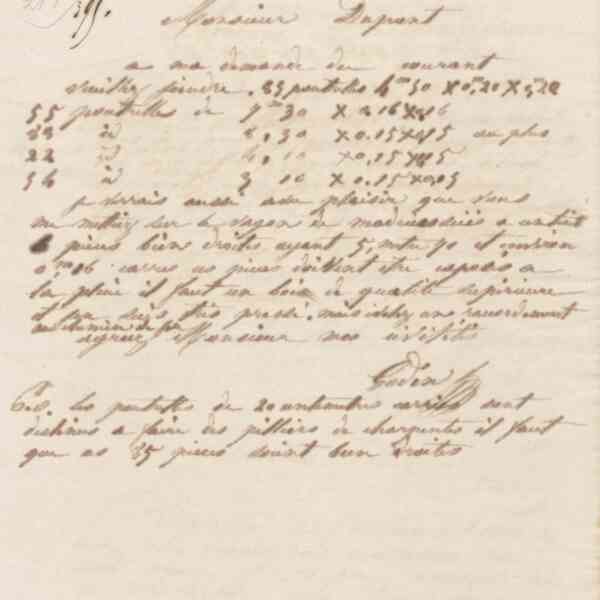 Monsieur Dupont
a ma demande du courant
veuillez joindre . 85 poutrelles 4,m 50 x 0,m20 x 0,m20
55 poutrelles de 4m 30 x 0.16 x 0.16
id 4,30 x 0.15 x 0.15 au plus
22 id 4,10 x 0.15 x 0.15
56 id 3 10 x 0.15 x 0.15
je verrais aussi avec plaisir que vous
me mettiez sur le wagon de madriers sciés
6 pièces bien droites ayant 5, metre 70 et environ
0,m 16 carrés ces pièces doivent être exposés a
la pluie il faut un bois de qualité supérieure
et je suis très pressé . mais
au chemin de fer
agréez Monsieur mes civilités
Godin
P.S. les poutrelles de 20 centimetres carrés sont
destinées a faire des pilliers de charpentes il faut
que ces 85 pieces soient bien droites